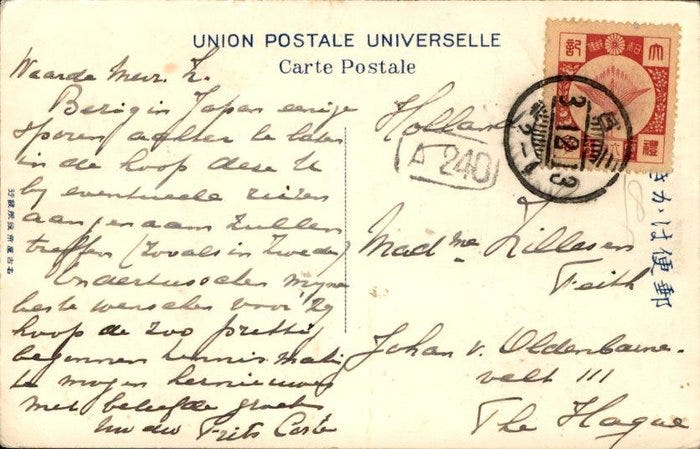 UNION POSTALE UNIVERSELLE
Carte Postale
Waarde Mevr. L.
Bezig in Japan eenige
sporen achter te laten
in de hoop deze U
by eventueele reizen
aangenaam zullen
treffen (zooals in Zweden)
Ondertusschen myne
beste wenschen voor '29
hoop de zoo prettig
begonnen kennismaking
te mogen hernieuwen
met beleefde groeten
Uw dw Frits
Holland
A 240
Mad me Lillesen
Feith
Johan v. Oldenbarne-
velt 111
The Hague
きかは便郵
名古屋市役所發行
大礼記念
日本郵便
3.12.3